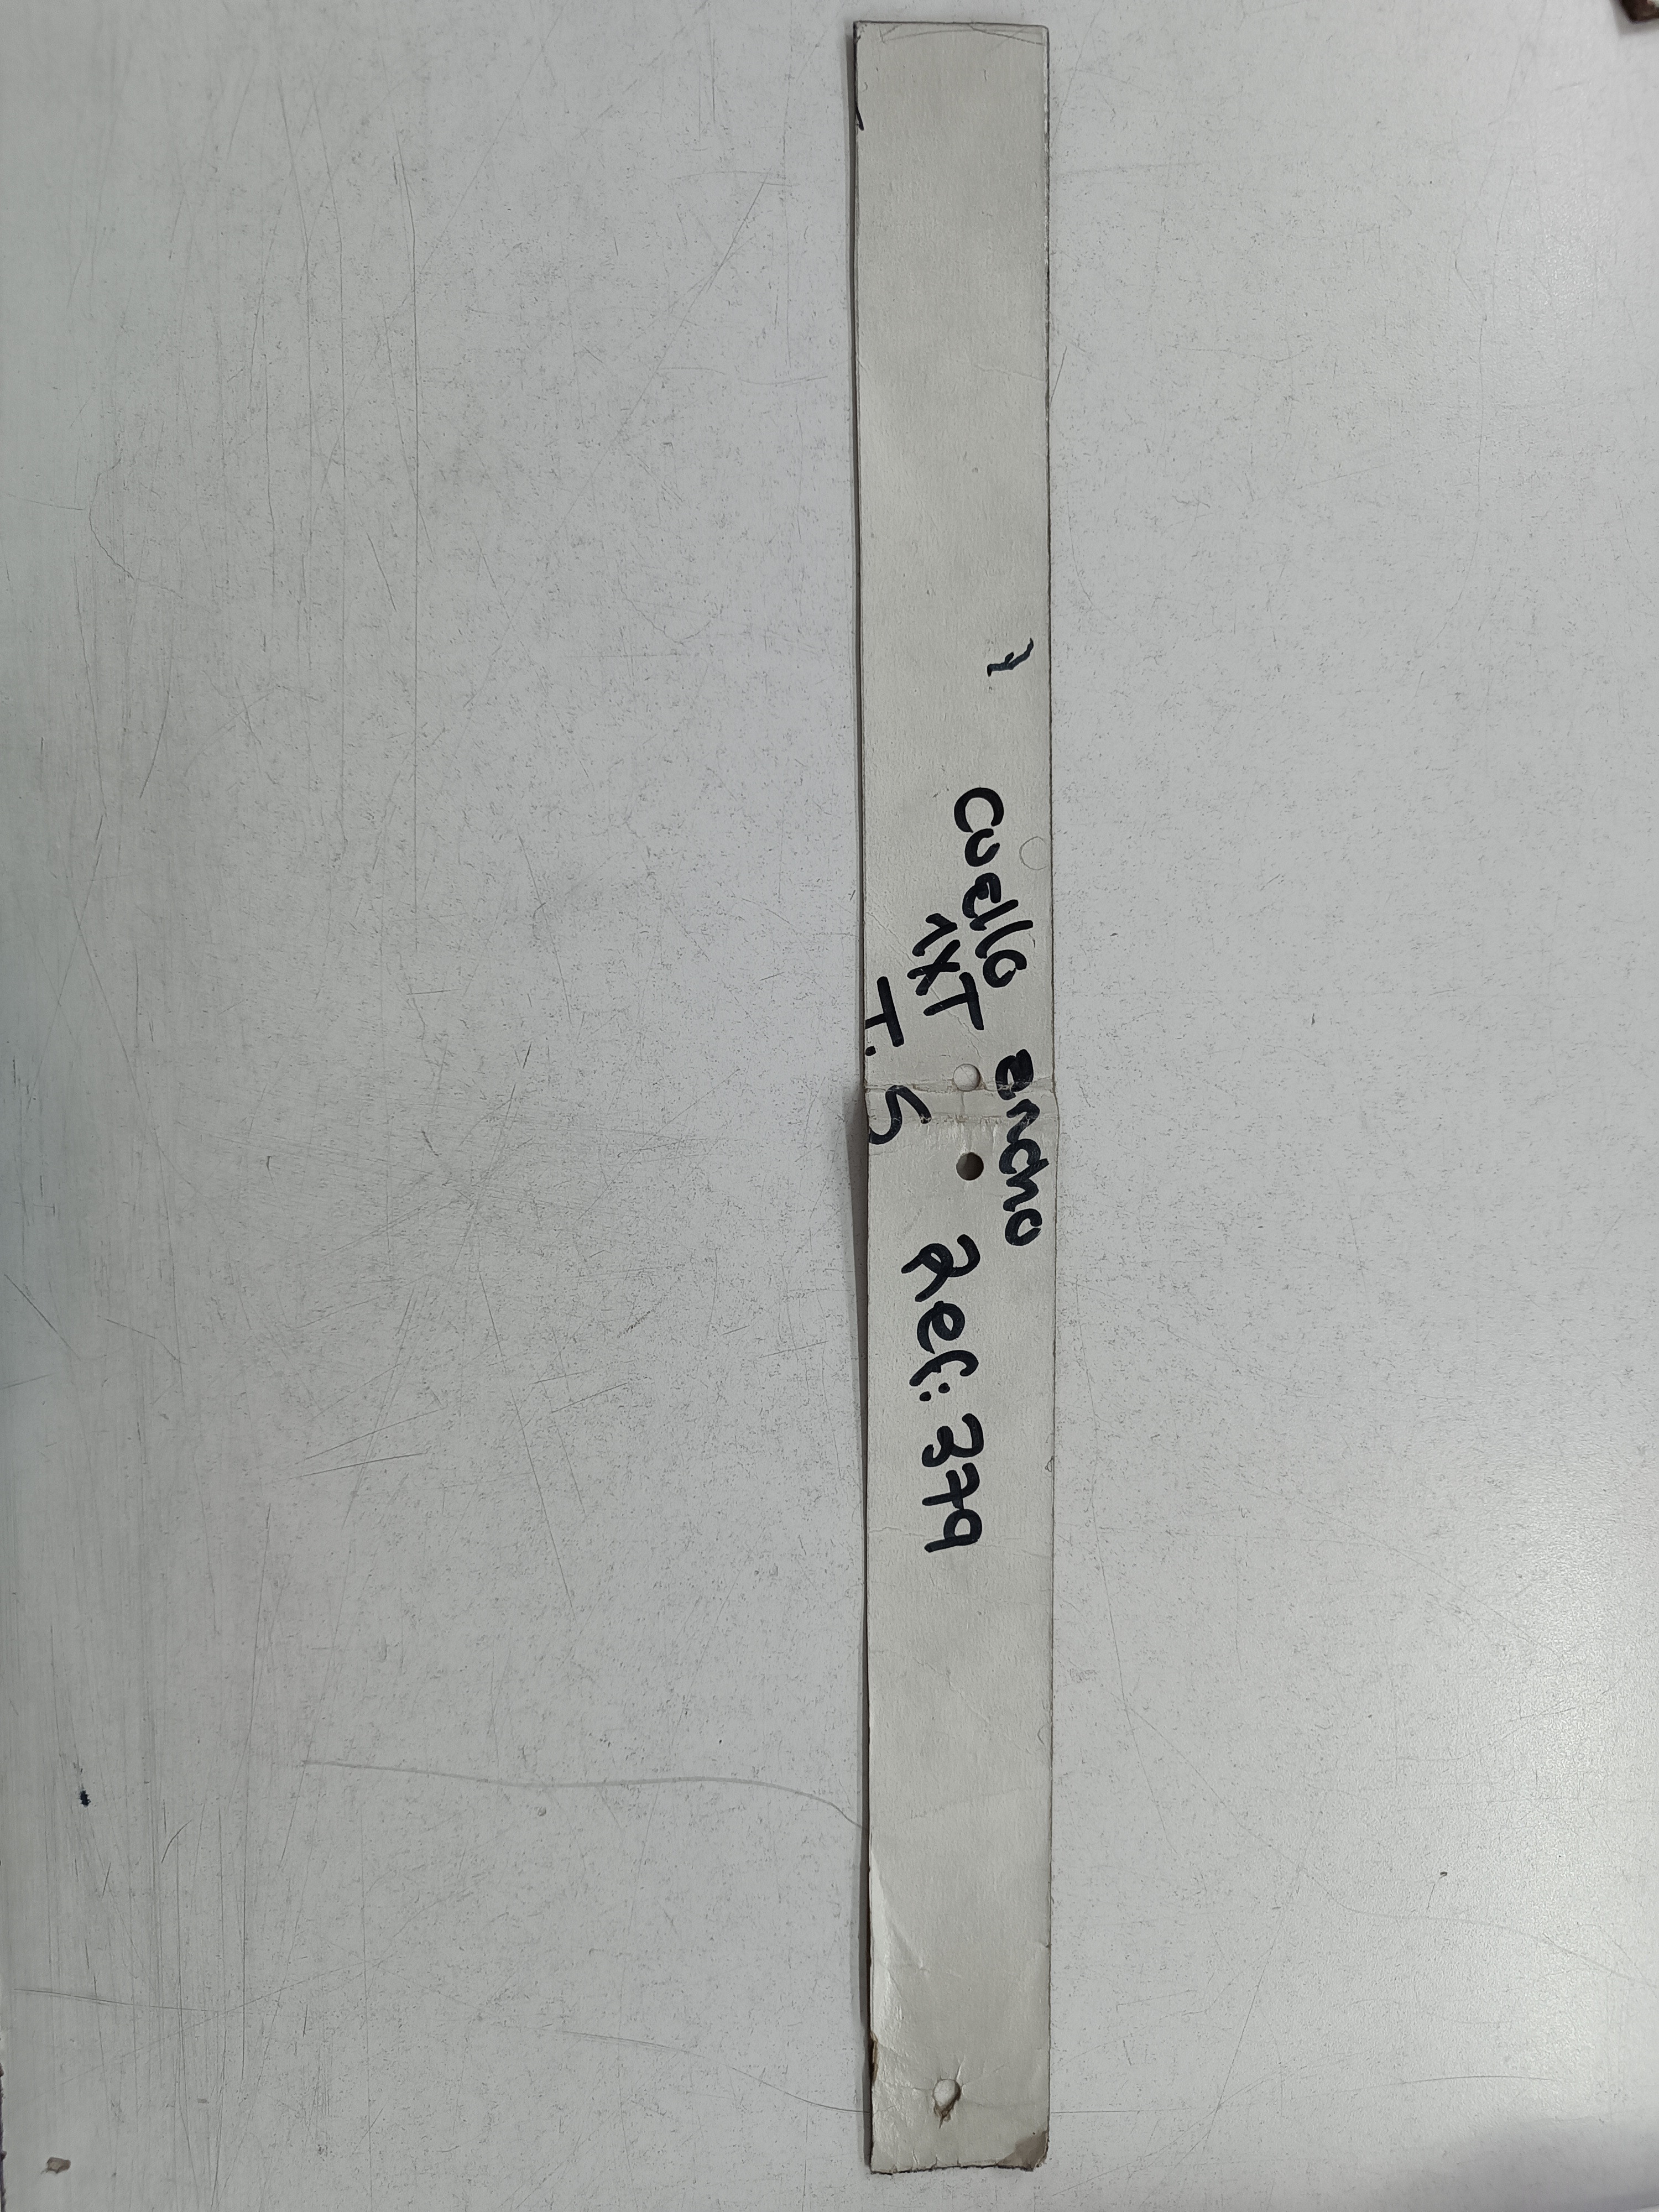 cuello ancho
1XT
T. S
Ref: 379